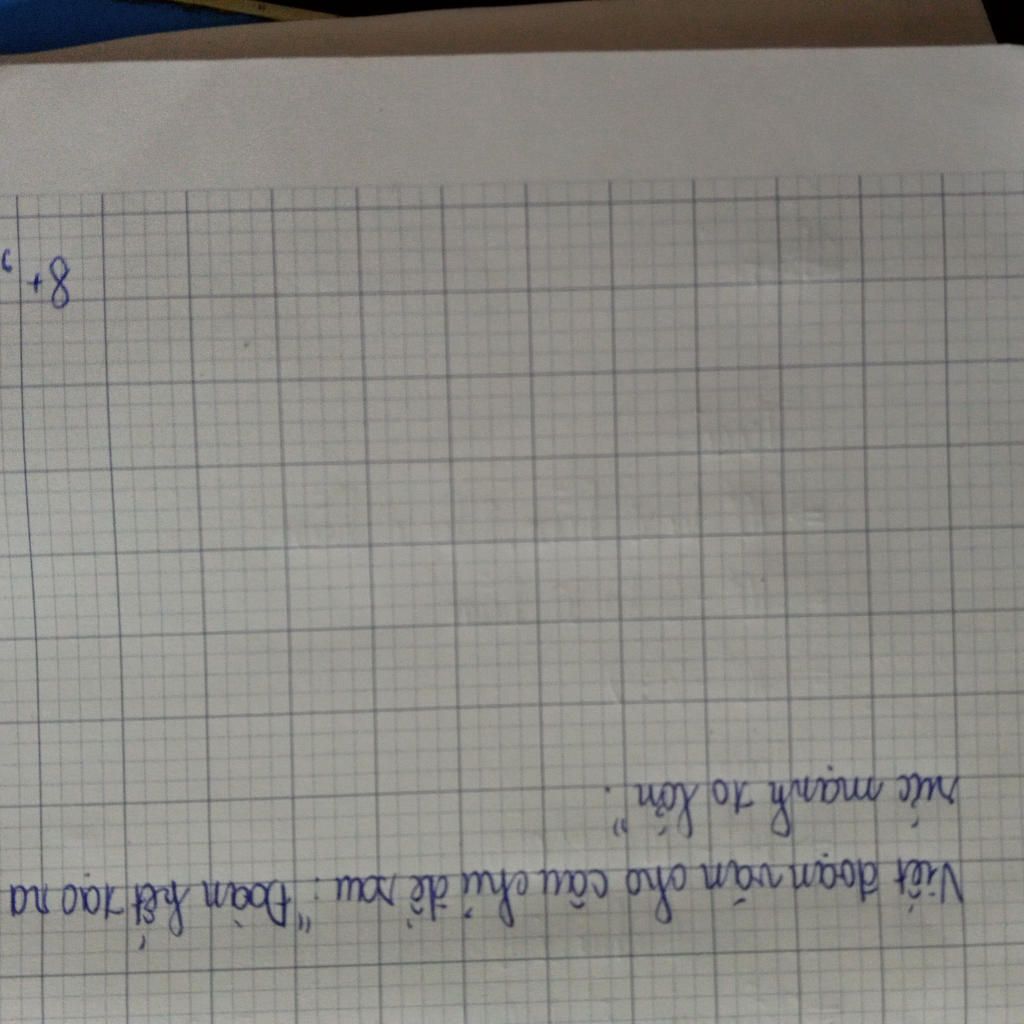 Viết đoạn văn cho câu chủ đề sau: "Đoàn kết tạo ra
sức mạnh to lớn".
8+